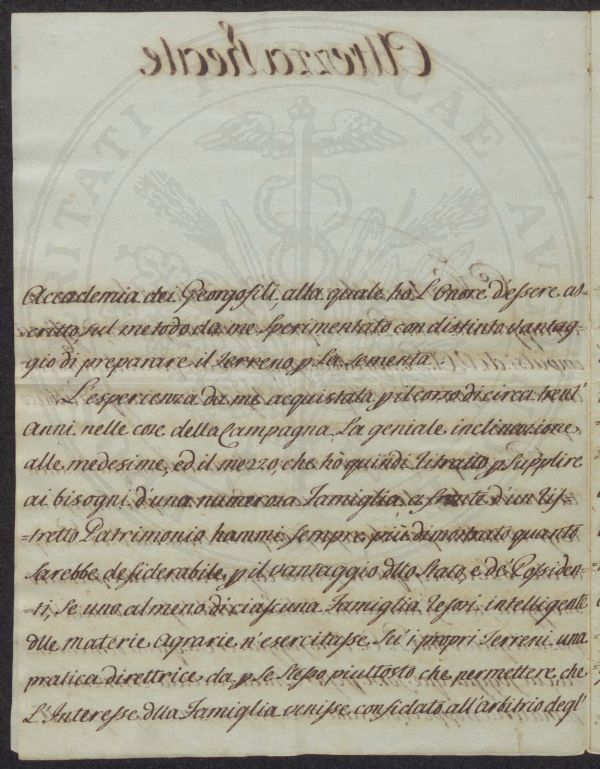 Altezza Reale.
PROSPERITATI PUBLICAE AU
Accademia dei Georgofili, alla quale hò L'Onore d'essere as=
critto, sul metodo da me sperimentato con distinto vantag=
gio di preparare il Terreno p la sementa.
L'esperienza da me acquistata p il corso di circa trent'
Anni nelle cose della Campagna, La geniale inclinazione
alle medesime, ed il mezzo, che hò quindi ritratto p supplire
ai bisogni d'una numerosa Famiglia, a fronte d'un ris=
=tretto Patrimonio hammi sempre più dimostrato quanto
sarebbe desiderabile p il vantaggio dllo Stato, e de' Possiden=
=ti, se uno almeno di ciascuna Famiglia resosi intelligente
dlle materie agrarie n'esercitasse su' i propri Terreni una
pratica direttrice da p se stesso piuttosto che permettere, che
L'Interesse dlla Famiglia venisse confidato all'arbitrio degl'